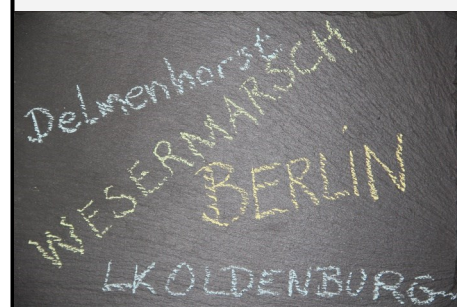 Delmenhorst
WESERMARSCH
BERLIN
LK OLDENBURG